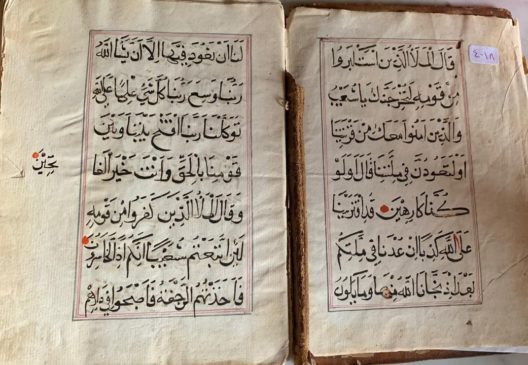 ٤-١٨
قال الملأ الذين استكبروا
من قومه لنخرجنك يا شعيب
والذين امنوا معك من قريتنا
او لتعودن في ملتنا قال اولو
كنا كارهين قد افترينا
على الله كذبا ان عدنا في ملتكم
بعد اذ نجانا الله منها وما يكون
لنا ان نعود فيها الا ان يشا الله
ربنا وسع ربنا كل شي علما على الله
توكلنا ربنا افتح بيننا وبين
قومنا بالحق وانت خير الفا
تحين
وقال الملأ الذين كفروا من قومه
لئن اتبعتم شعيبا انكم اذا لخاسرون
فاخذتهم الرجفة فاصبحوا في دارهم